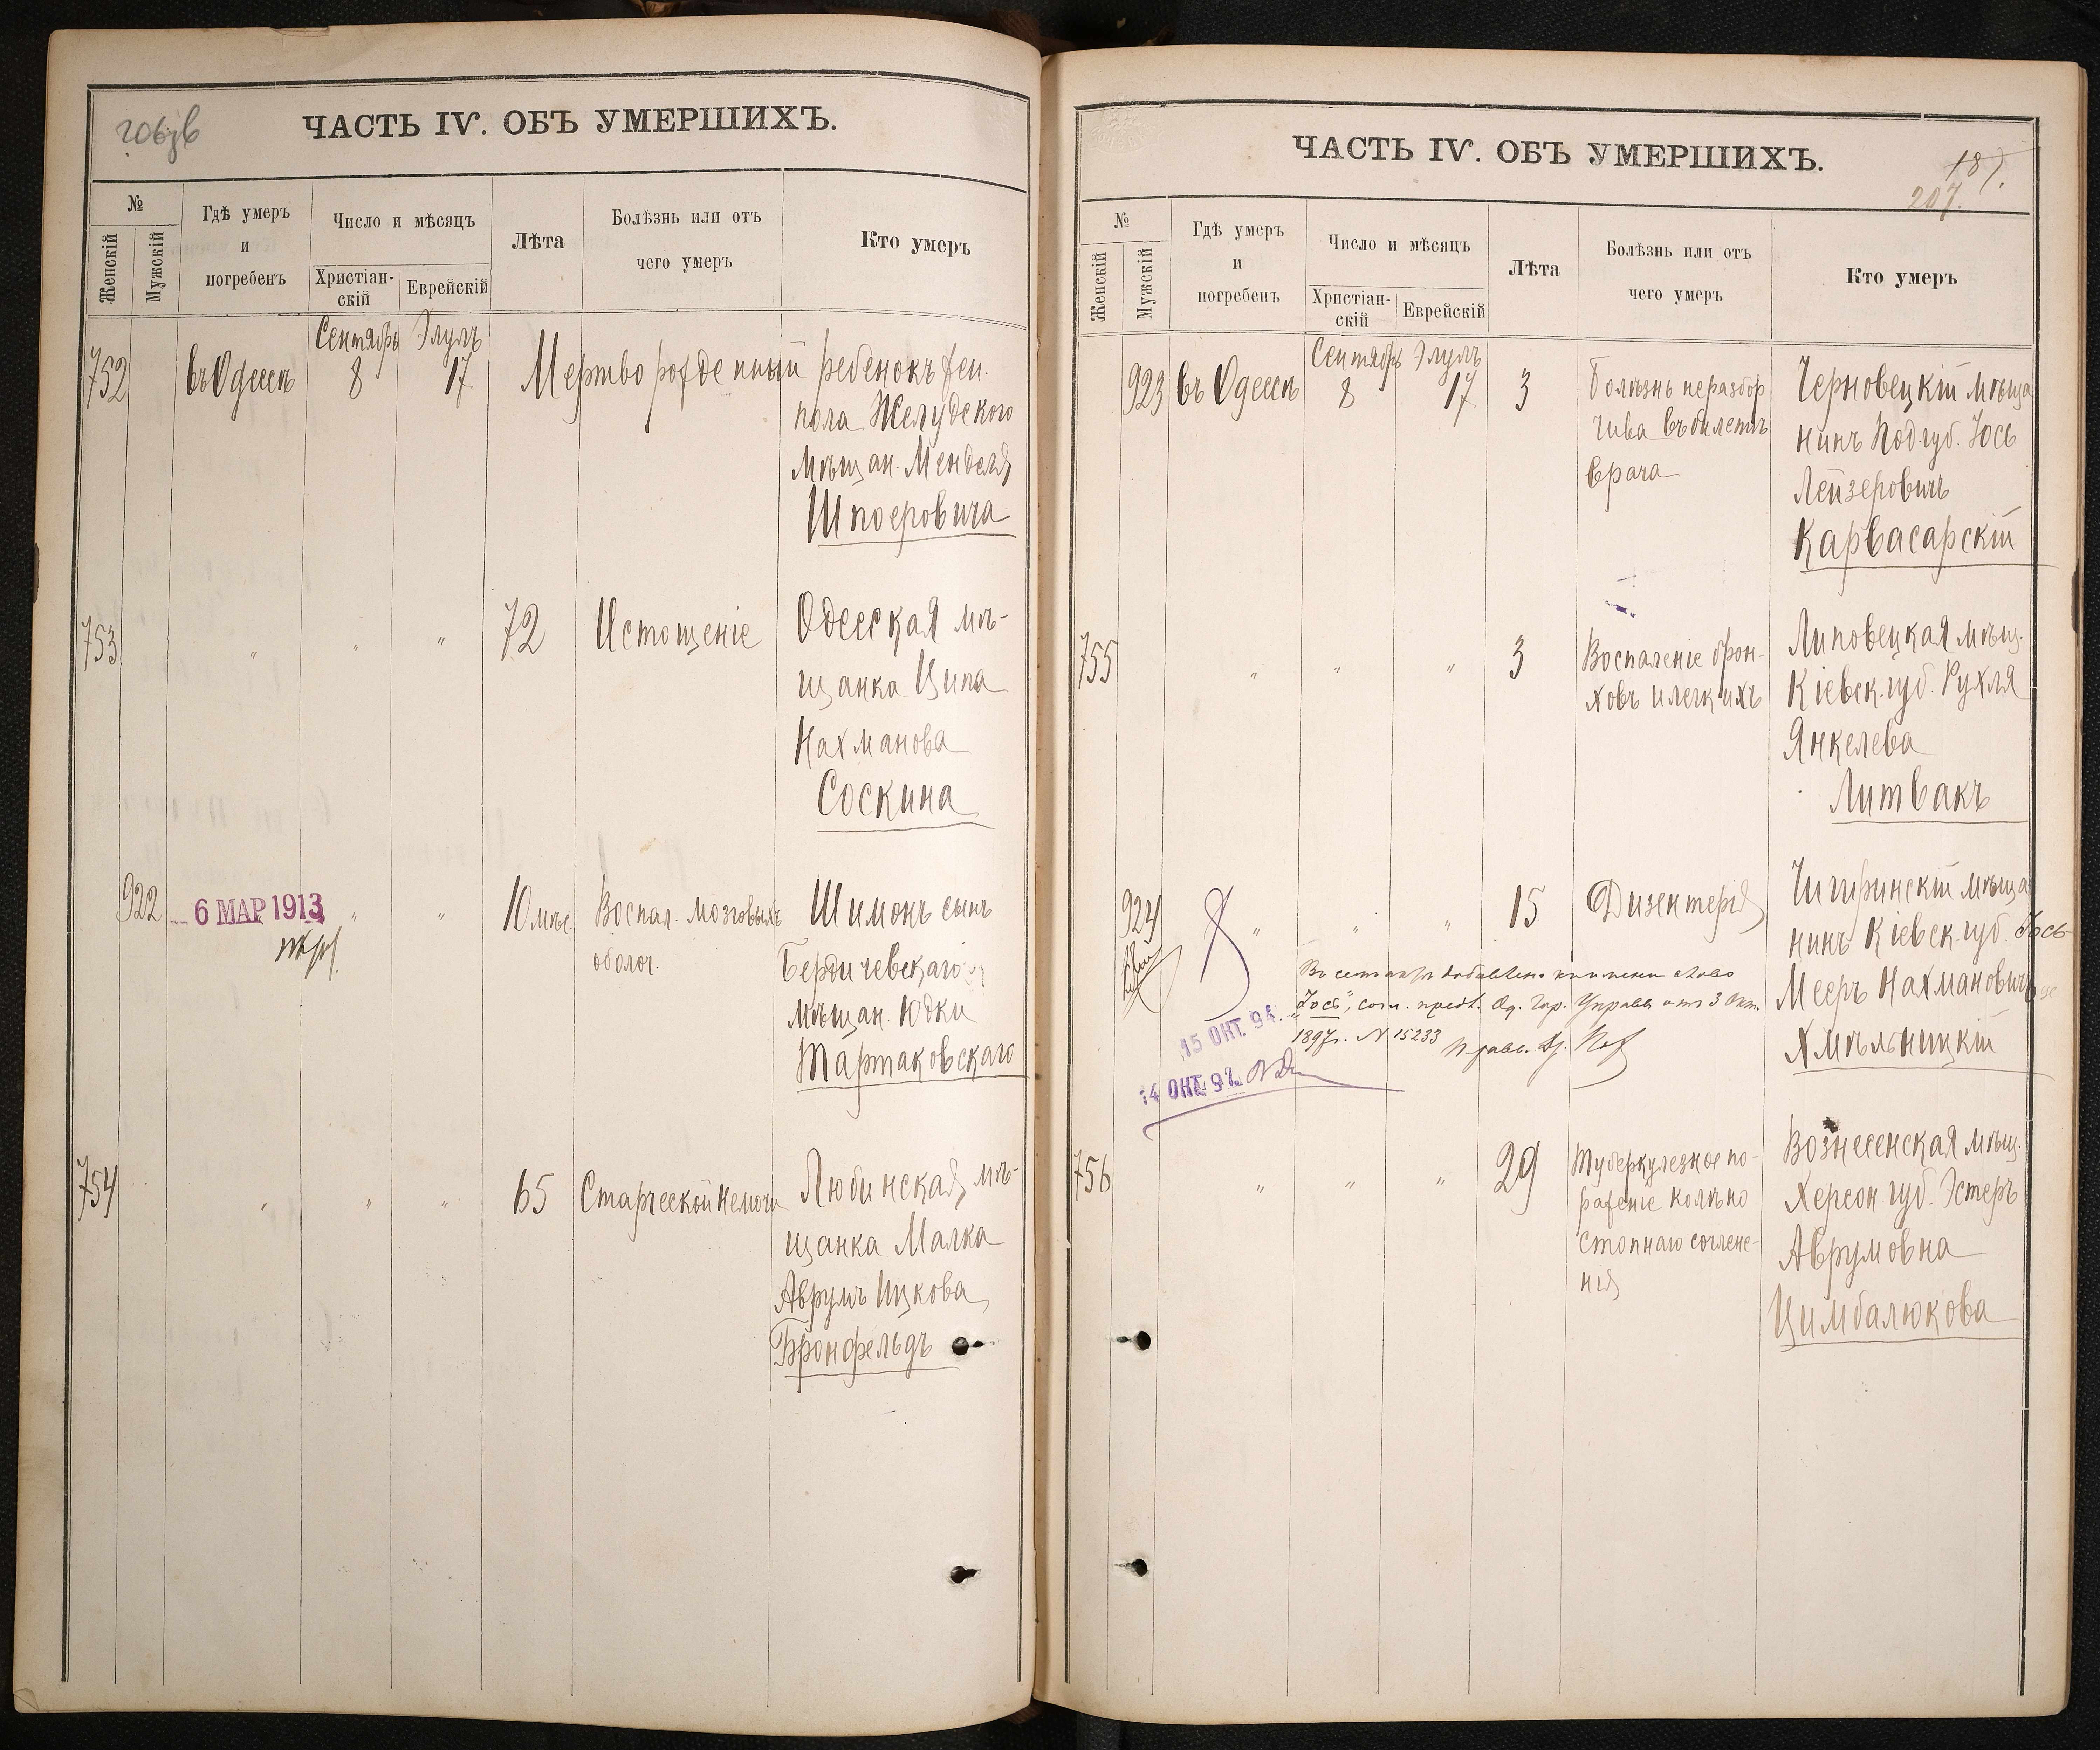 206 зв
ЧАСТЬ IV. ОБЪ УМЕРШИХЪ.
№
Женскій
Мужскій
Гдѣ умеръ
и
погребенъ
Число и мѣсяцъ
Христіан-
скій
Еврейскій
Лѣта
Болѣзнь или отъ
чего умеръ
Кто умеръ
Сентябрь Элулъ
752 въ Одессѣ 8 17 Мертворожденный ребенокъ жен.
пола Желудского
мѣщан. Менделя
Шпоеровича
753 " " " 72 Истощеніе Одесская мѣ-
щанка Ципа
Нахманова
Соскина
922 6 МАР 1913 " " 10 мѣс. Воспал. мозговыхъ Шимонъ сынъ
оболоч. Бердичевскаго
мѣщан. Юдки
Тартаковскаго
754 " " " 65 Старческой немочи Любинская мѣ-
щанка Малка
Аврумъ Ицкова
Бронфельдъ
ЧАСТЬ IV. ОБЪ УМЕРШИХЪ.
187.
207.
№
Женскій
Мужскій
Гдѣ умеръ
и
погребенъ
Число и мѣсяцъ
Христіан-
скій
Еврейскій
Лѣта
Болѣзнь или отъ
чего умеръ
Кто умеръ
Сентябрь Элулъ
923 въ Одессѣ 8 17 3 Болѣзнь неразбор Черновецкій мѣща
чива въ билетѣ нинъ Под. губ. Іось
врача Лейзеровичъ
Карвасарскій
755 " " " 3 Воспаленіе брон- Липовецкая мѣщ.
ховъ и легкихъ Кіевск. губ. Рухля
Янкелева
Литвакъ
924 " " " 15 Дизентерія Чигиринскій мѣща
нинъ Кіевск. губ. Іось
Мееръ Нахмановичъ
Хмѣльницкій
8
добавлено къ имени слово
"Іось", согл. предв. Од. Гор. Управы отъ 3 Окт.
1897 г. N 15233
15 ОКТ. 94.
14 ОКТ 97.
756 " " " 29 Туберкулезное по- Вознесенская мѣщ.
раженіе колѣно Херсон. губ. Эстеръ
стопнаго сочлене- Аврумовна
нія Цимбалюкова